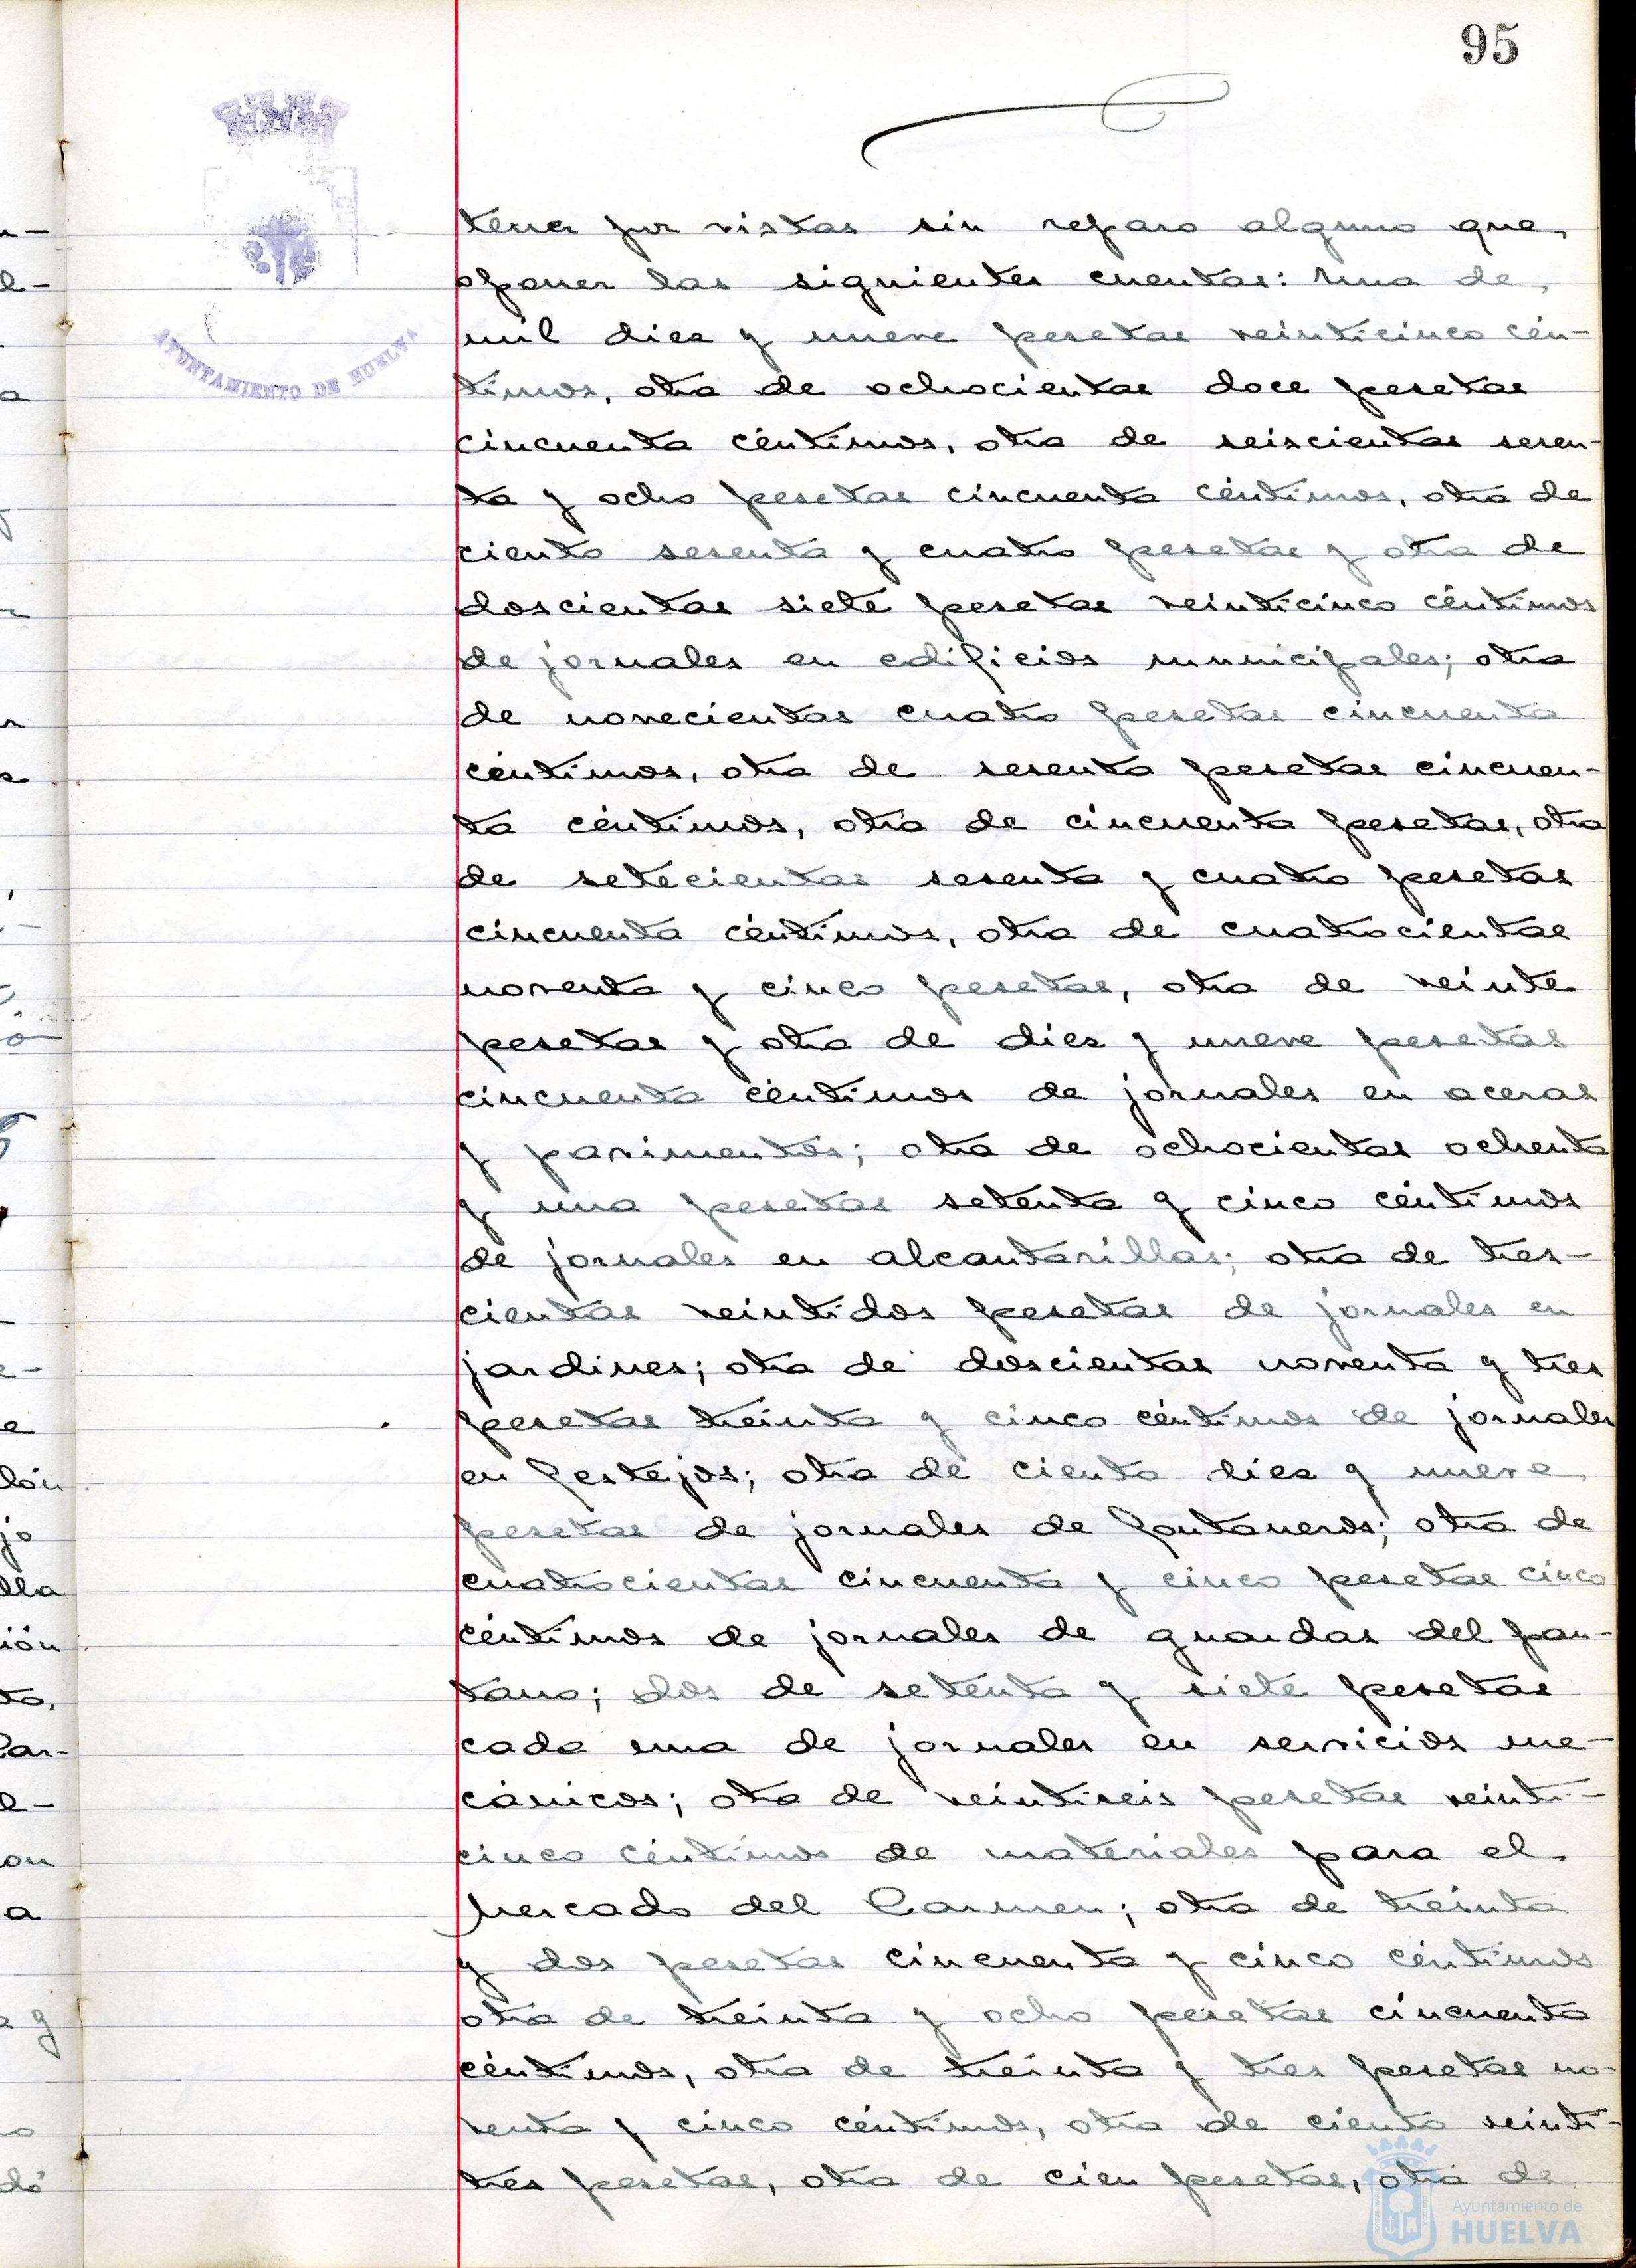 95
AYUNTAMIENTO DE HUELVA
tener por vistas sin reparo alguno que
oponer las siguientes cuentas: Una de
mil diez y nueve pesetas veinticinco cén-
timos, otra de ochocientas doce pesetas
cincuenta céntimos, otra de seiscientas sesen-
ta y ocho pesetas cincuenta céntimos, otra de
ciento sesenta y cuatro pesetas y otra de
doscientas siete pesetas veinticinco céntimos
de jornales en edificios municipales; otra
de novecientas cuatro pesetas cincuenta
céntimos, otra de sesenta pesetas cincuen-
ta céntimos, otra de cincuenta pesetas, otra
de setecientas sesenta y cuatro pesetas
cincuenta céntimos, otra de cuatrocientas
noventa y cinco pesetas, otra de veinte
pesetas y otra de diez y nueve pesetas
cincuenta céntimos de jornales en aceras
y pavimentos; otra de ochocientas ochenta
y una pesetas setenta y cinco céntimos
de jornales en alcantarillas; otra de tres-
cientas veintidos pesetas de jornales en
jardines; otra de doscientas noventa y tres
pesetas treinta y cinco céntimos de jornales
en festejos; otra de ciento diez y nueve
pesetas de jornales de fontaneros; otra de
cuatrocientas cincuenta y cinco pesetas cinco
céntimos de jornales de guardas del pan-
tano; dos de setenta y siete pesetas
cada una de jornales en servicios me-
cánicos; otra de veintiseis pesetas veinti-
cinco céntimos de materiales para el
Mercado del Carmen; otra de treinta
y dos pesetas cincuenta y cinco céntimos
otra de treinta y ocho pesetas cincuenta
céntimos, otra de treinta y tres pesetas no-
venta y cinco céntimos, otra de ciento veinti-
trés pesetas, otra de cien pesetas, otra de
Ayuntamiento de
HUELVA